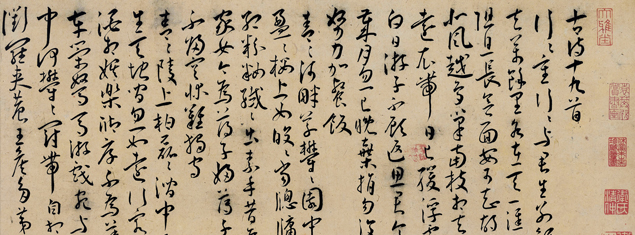 古詩十九首
行〻重行〻與君生別
去萬餘里各在天一涯
阻且長會面安可知胡
北風越鳥巢南枝相去
遠衣帶日〻緩浮雲
白日游子不顧返思君令
歲月忽已晚棄捐勿復
努力加餐飯
青〻河畔草鬱〻園中
盈〻樓上女皎〻當窗牖
紅粉粧纖〻出素手昔
家女今為蕩子婦蕩子
不歸空牀難獨守
青〻陵上柏磊〻澗中
生天地間忽如遠行客
酒相娛樂聊厚不為薄
車策駑馬游戲宛與
中何鬱〻冠帶自相
衢羅夾巷王侯多第